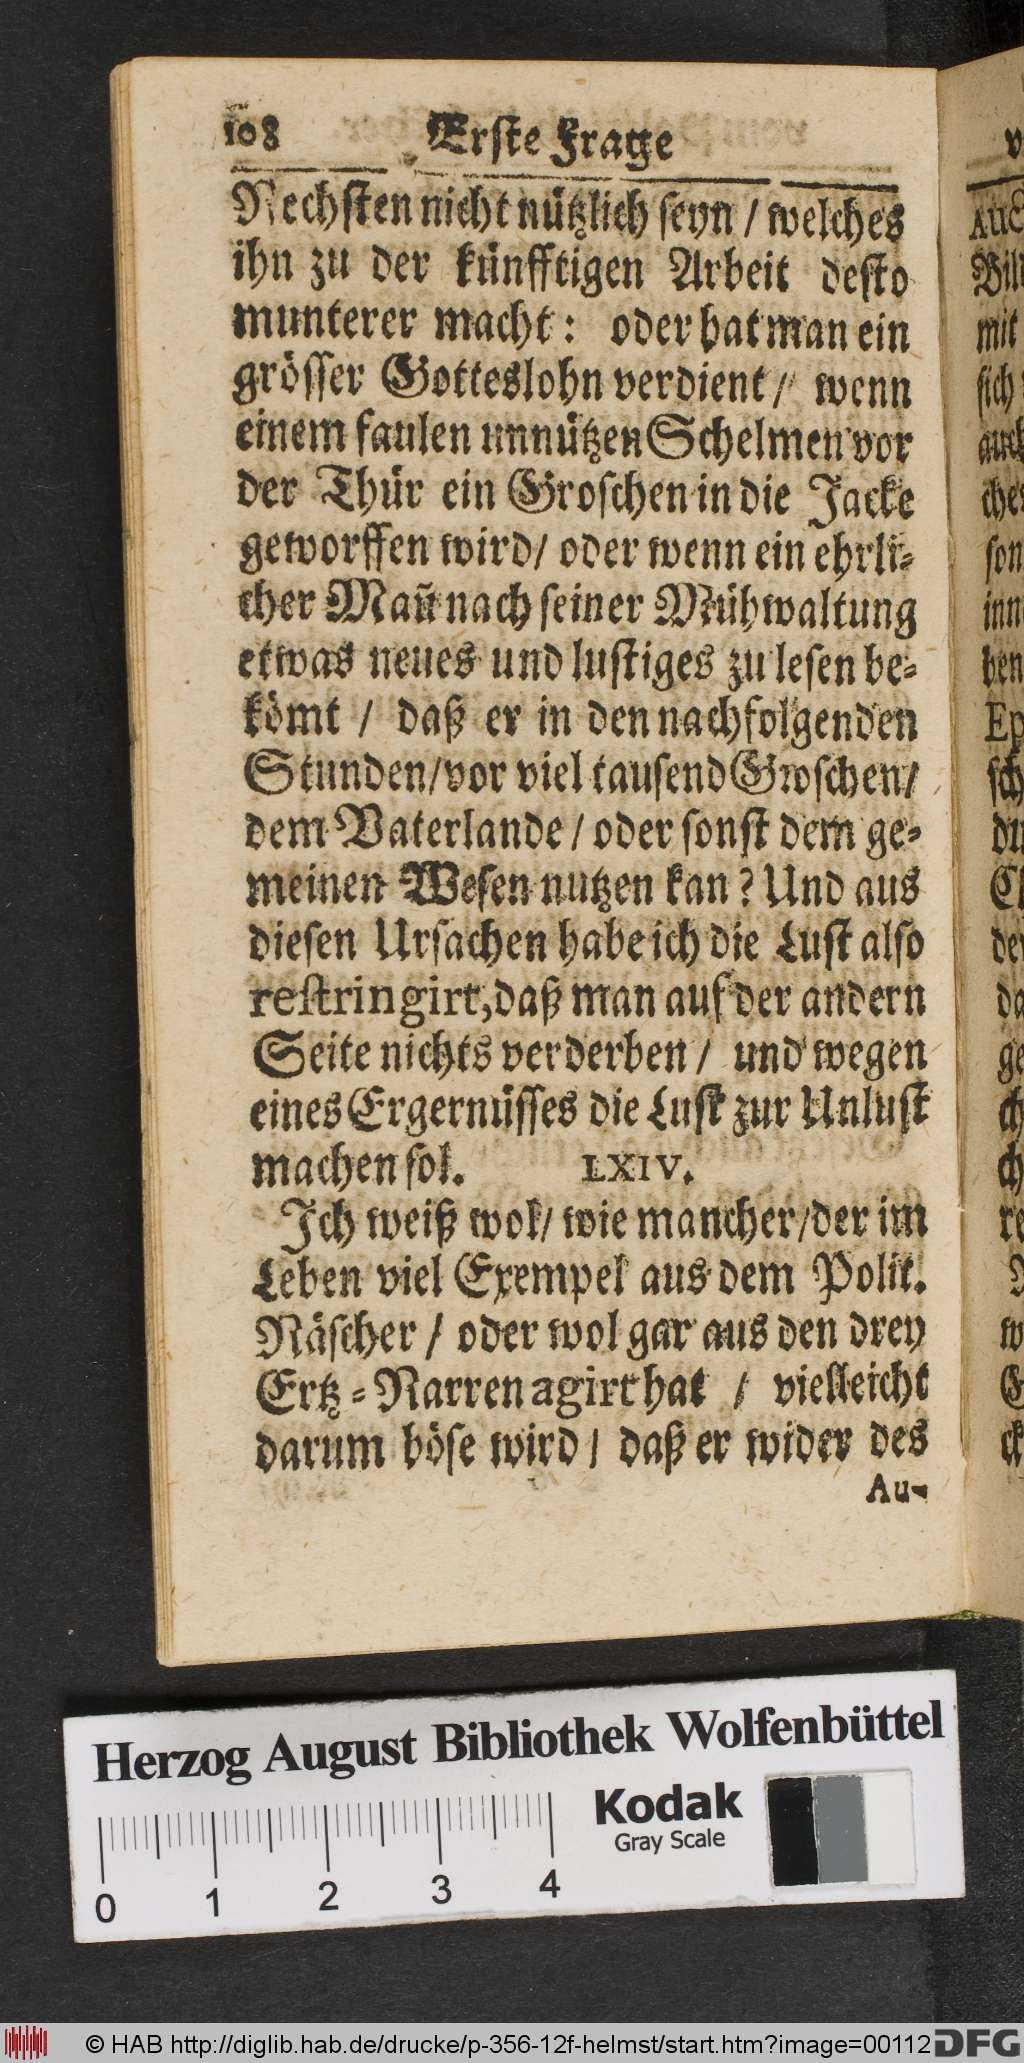 108 Erste Frage
Nechsten nicht nützlich seyn / welches
ihn zu der künfftigen Arbeit desto
munterer macht: oder hat man ein
grösser Gotteslohn verdient / wenn
einem faulen unnützen Schelmen vor
der Thür ein Groschen in die Jacke
geworffen wird / oder wenn ein ehrli-
cher Mañ nach seiner Mühwaltung
etwas neues und lustiges zu lesen be-
kömt / daß er in den nachfolgenden
Stunden / vor viel tausend Groschen /
dem Vaterlande / oder sonst dem ge-
meinen Wesen nutzen kan? Und aus
diesen Ursachen habe ich die Lust also
restringirt, daß man auf der andern
Seite nichts verderben / und wegen
eines Ergernüsses die Lust zur Unlust
machen sol. LXIV.
Ich weiß wol / wie mancher / der im
Leben viel Exempel aus dem Polit.
Näscher / oder wol gar aus den drey
Ertz-Narren agirt hat / vielleicht
darum böse wird / daß er wider des
Au-
Herzog August Bibliothek Wolfenbüttel
Kodak
Gray Scale
0 1 2 3 4
© HAB http://diglib.hab.de/drucke/p-356-12f-helmst/start.htm?image=00112
DFG